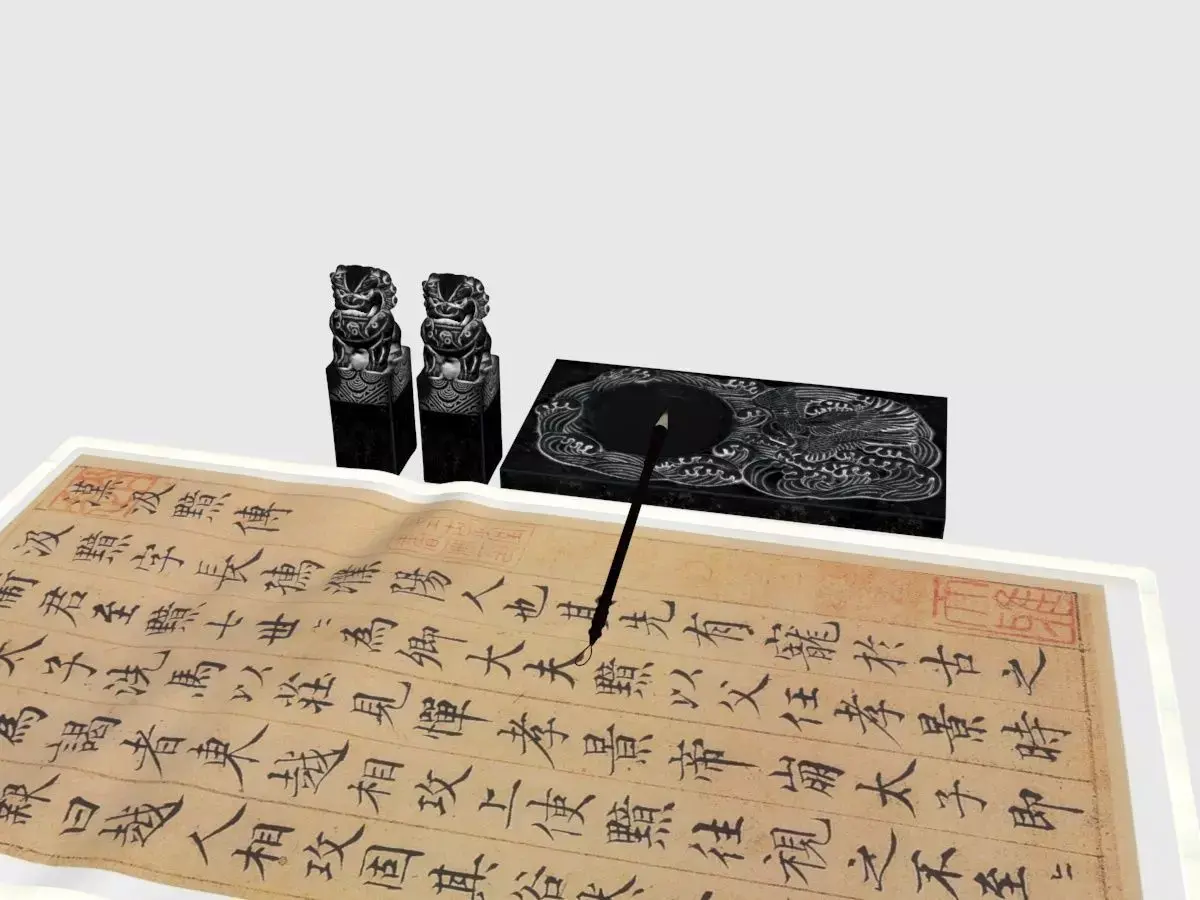 漢汲黯傳
汲黯字長孺濮陽人也其先有寵於古之
衛君至黯七世〻為卿大夫黯以父任孝景時
太子洗馬以莊見憚孝景帝崩太子即
為謁者東越相攻上使黯往視之不至〻
曰越人相攻固其俗